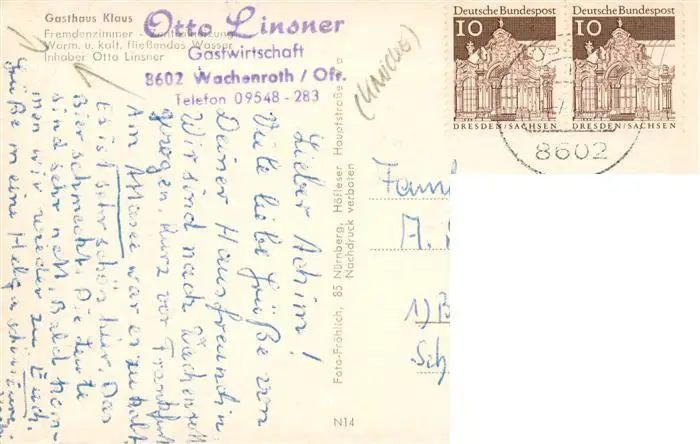 Gasthaus Klaus
Fremdenzimmer - Zentralheizung
Warm. u. kalt. fließendes Wasser
Inhaber Otto Linsner
Otto Linsner
Gastwirtschaft
8602 Wachenroth / Ofr.
Telefon 09548 - 283
Deutsche Bundespost
10
DRESDEN/SACHSEN
Deutsche Bundespost
10
DRESDEN/SACHSEN
8602
Lieber Achim!
Viele liebe Grüße von
Deiner Hausfreundin
Wir sind nach Wachenroth
gezogen. Kurz vor Frankfurt
Am war es zu kalt
Es ist sehr schön hier. Das
Bier schmeckt. Die Leute
sind sehr nett. Bald kom-
men wir wieder zu Euch.
Grüße meine
Foto-Fröhlich, 85 Nürnberg, Höfleser Hauptstraße
Nachdruck verboten
N14
Fam
A.
1) B
Sch